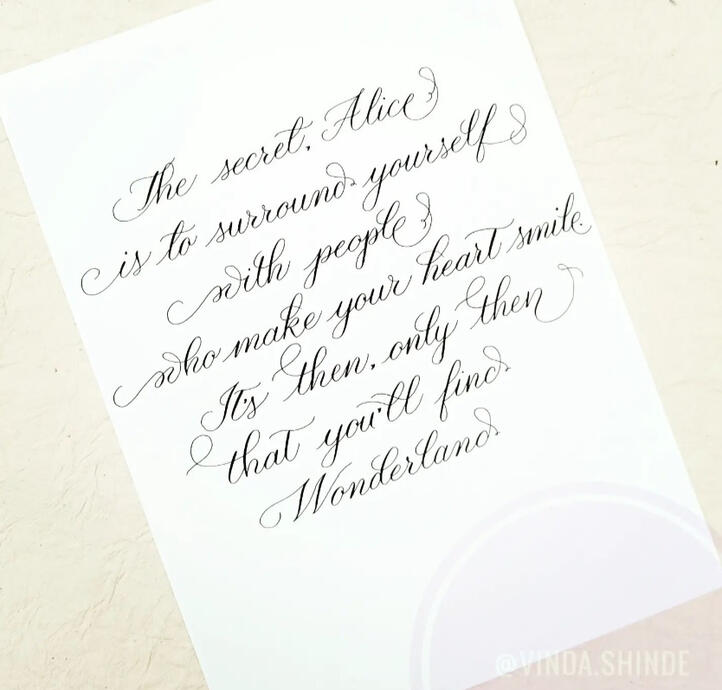 The secret, Alice
is to surround yourself
with people
who make your heart smile.
It's then, only then
that you'll find
Wonderland
@VINDA.SHINDE